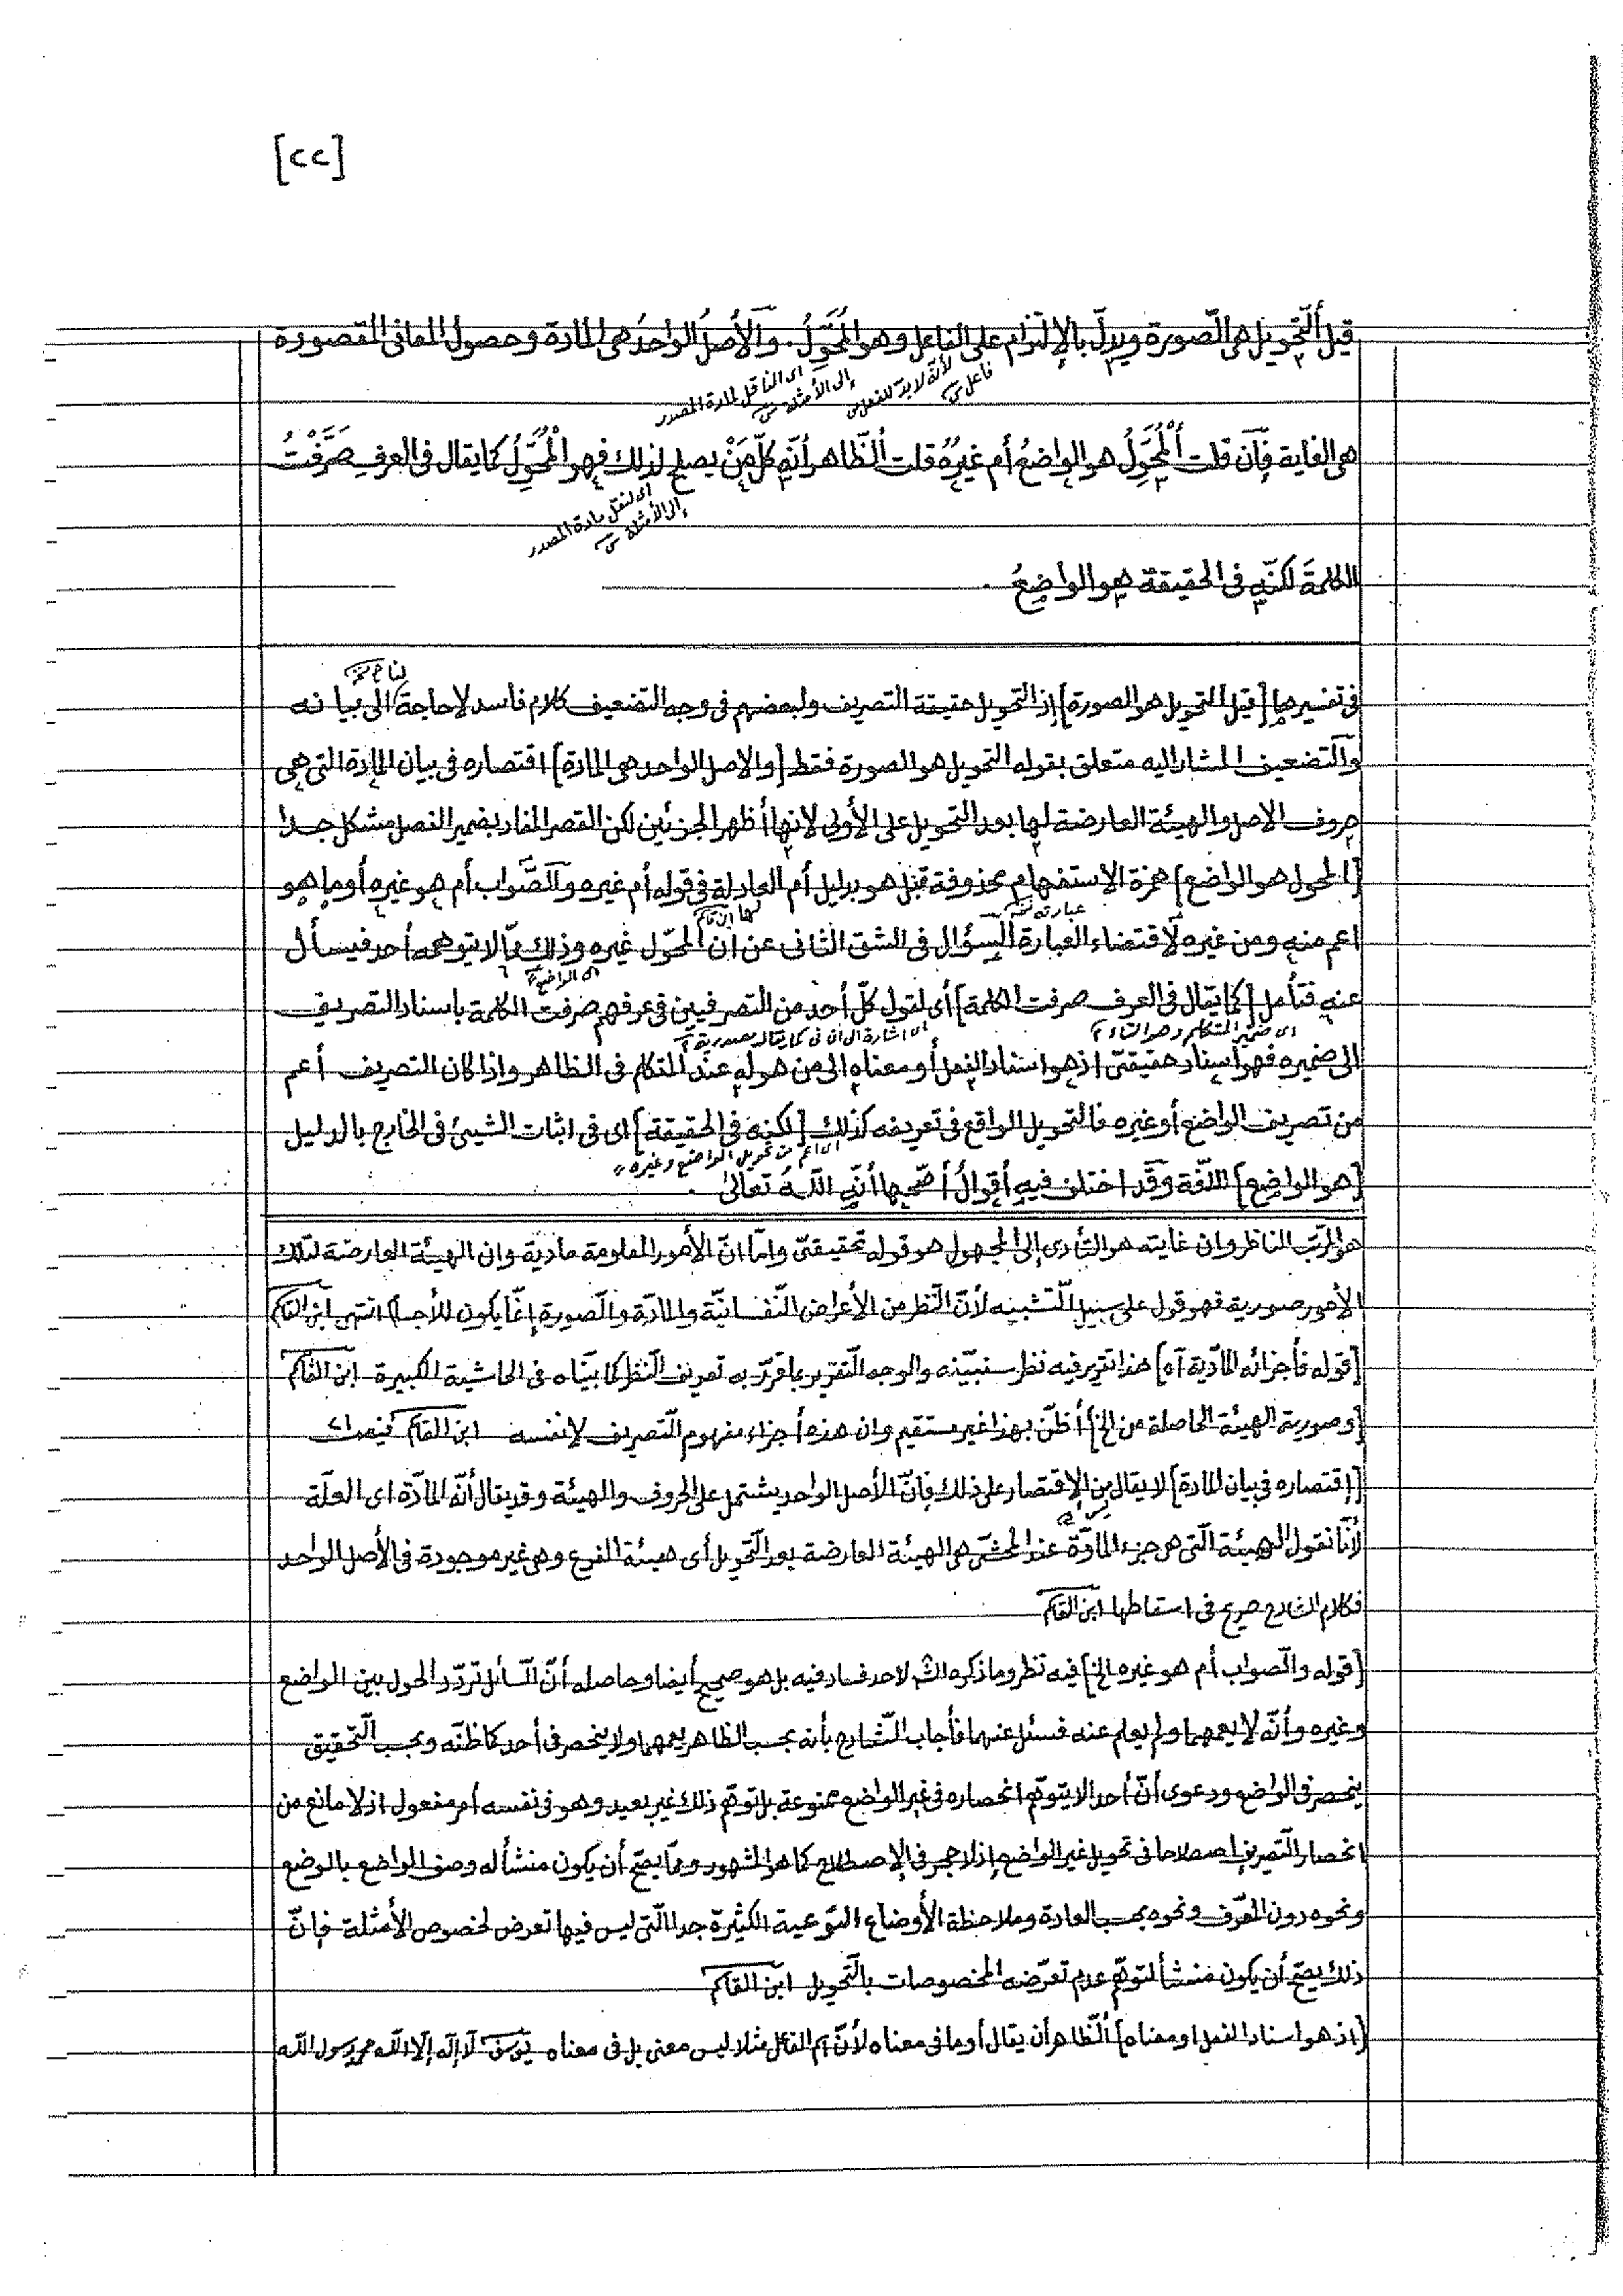 [٢٢]
قيل ألتّحويل هى الصّورة ويدلّ بالإلتزام على الفاعل وهو المُحَوِّلُ . والأصلُ الواحدُ هى المادة وحصولُ المعانى المقصودة
لأنّه لابدّ للفعل من فاعل
أى الناقل لمادة المصدر إلى الأمثلة
هى الغاية فإن قلت ألْمُحَوِّلُ هو الواضعُ أم غيرُهُ قلت ألظّاهر أنّه كلّ مَنْ يصلح لذلك فهو الْمُحَوِّلُ كما يقال فى العرف صَرَّفْتُ
أى لنقل مادة المصدر إلى الأمثلة
الكلمةَ لكنّه فى الحقيقة هو الواضِعُ .
فى تفسيرها [قيل التحويل هو الصورة] إذ التحويل حقيقة التصريف ولبعضهم فى وجه التضعيف كلام فاسد لا حاجة لنا إلى بيانه
والتضعيف المشار اليه متعلق بقوله التحويل هو الصورة فقط [والاصل الواحد هو المادة] اقتصاره فى بيان المادة التى هى
حروف الاصل والهيئة العارضة لها بعد التحويل على الأولى لانها أظهر الجزئين لكن القصر المفاد بضمير الفصل مشكل جدا
[المحول هو الواضع] همزة الاستفهام محذوفة قبل هو بدليل أم العادلة فى قوله أم غيره والصّواب أم هو غيره أو ما هو
اعم منه ومن غيره لاقتضاء العبارة السؤال فى الشق الثانى عن ان المحوّل غيره وذلك ممّا لا يتوهمه أحد فيسأل
عنه فتأمل [كما يقال فى العرف صرفت الكلمة] أى لقول كلّ أحد من التصرفيين فى عرفهم صرفت الكلمة باسناد التصريف
أى ضمير المتكلم وهو التاء
أى اشارة الى ان فى كما يقال مصدرية
الى ضميره فهو اسناد حقيقىّ اذ هو اسناد الفعل أو معناه الى من هو له عند المتكلم فى الظاهر واذا كان التصريف أعم
من تصريف الواضع أو غيره فالتحويل الواقع فى تعريفه كذلك [لكنه فى الحقيقة] اى فى اثبات الشيئ فى الخارج بالدليل
اى اعم من تحويل الواضع وغيره
[هو الواضع] اللّغة وقد اختلف فيه أقوالٌ أصّحها أنّه اللّهُ تعالىٰ .
هو المرتّب الناظر وان غايته هو التأدى إلى المجهول هو قوله تحقيقىّ وامّا انّ الأمور المعلومة مادية وان الهيئة العارضة لتلك
الأمور صورية فهو قول على سبيل التّشبيه لأنّ النّظر من الأعراض النّفسانيّة والمادّة والصّورة إنّما يكون للأجسام انتهى ابن القاسم
[قوله فأجزائه المادّية آه] هذا تقرير فيه نظر سنبيّنه والوجه التقرير بما قرّر به تعريف النّظر كما بيّناه فى الحاشية الكبيرة ابن القاسم
[وصورية الهيئة الحاصلة من الخ] أظنّ بهذا غير مستقيم وان هذه أجزاء مفهوم التّصريف لا نفسه ابن القاسم
[إقتصاره فى بيان المادة] لا يقال من الإقتصار على ذلك فإنّ الأصل الواحد يشتمل على الحروف والهيئة وقد يقال أنّه المادّة اى العلّة
لأنّا نقول الهيئة الّتى هى جزء المادّة عند المحشّى هى الهيئة العارضة بعد التّحويل أى هيئة الفرع وهى غير موجودة فى الأصل الواحد
فكلام الشارح صريح فى اسقاطها ابن القاسم
[قوله والصّواب أم هو غيره الخ] فيه نظر وما ذكره الشّـ لا فساد فيه بل هو صحيح أيضا وحاصله أنّ السّائل تردّد المحول بين الواضع
وغيره وأنّه لا يعمهما ولم يعلم عنه فسئل عنهما فأجاب الشّارح بأنه بحسب الظاهر يعمهما ولا ينحصر فى أحد كما ظنّه وبحسب التّحقيق
ينحصر فى الواضع ودعوى أنّ أحدا لا يتوهّم انحصاره فى غير الواضع ممنوعة بل توهّم ذلك غير بعيد وهو فى نفسه أمر مفعول اذ لا مانع من
انحصار التّصريف اصطلاحا فى تحويل غير الواضع إذ لا حجر فى الإصطلاح كما هو المشهور وممّا يصحّ أن يكون منشأ له وصف الواضع بالوضع
ونحوه دون المعرّف ونحوه بحسب العادة وملاحظة الأوضاع النّوعية الكثيرة جدا الّتى ليس فيها تعرض لخصوص الأمثلة فإنّ
ذلك يصحّ أن يكون منشأ لتوهّم عدم تعرّضه المخصوصات بالتّحويل ابن القاسم
[اذ هو اسناد الفعل او معناه] ألظّاهر أن يقال أو ما فى معناه لأنّ اسم الفاعل مثلا ليس معنى بل فى معناه يوسف لا إله إلا اللّه محمد رسول اللّه